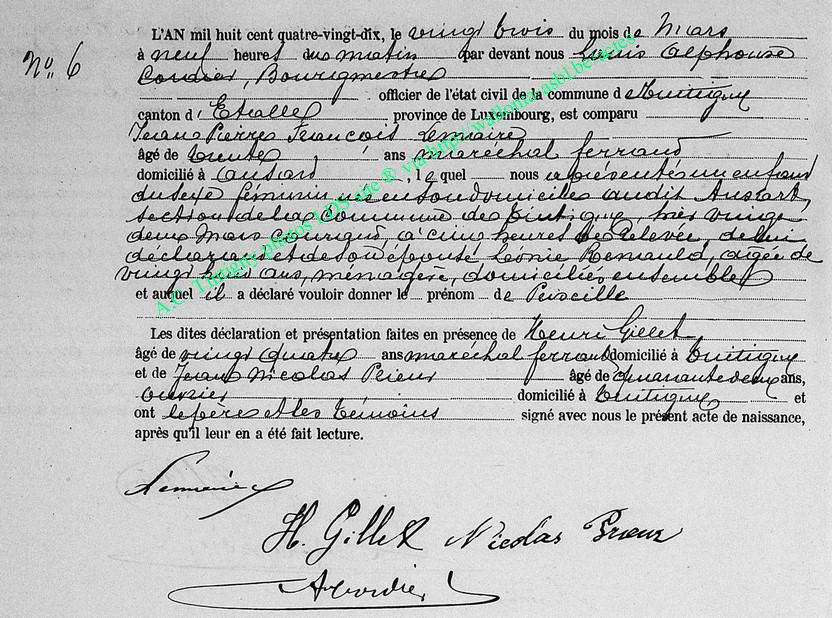 L'AN mil huit cent quatre-vingt-dix, le vingt trois du mois de Mars
N°. 6
à neuf heures du matin par devant nous Louis Alphonse
Cordier, Bourgmestre
officier de l'état civil de la commune de Tintigny
canton d'Etalle province de Luxembourg, est comparu
Jean Pierre François Lemaire
âgé de trente ans maréchal ferrant
domicilié à Ansart, lequel nous a présenté un enfant
du sexe féminin, né en son domicile audit Ansart,
section de la commune de Tintigny, hier vingt
deux Mars courant, à cinq heures de relevée, de lui
déclarant et de son épouse Léonie Renauld, âgée de
vingt huit ans, ménagère, domiciliés ensemble
et auquel il a déclaré vouloir donner le prénom de Priscille
Les dites déclaration et présentation faites en présence de Henri Gillet
âgé de vingt quatre ans maréchal ferrant domicilié à Tintigny
et de Jean Nicolas Prieur âgé de quarante deux ans,
domicilié à Tintigny et
ont le père et les témoins signé avec nous le présent acte de naissance,
après qu'il leur en a été fait lecture.
Lemaire
H. Gillet Nicolas Prieur
A Cordier
A.C. Tintigny photos LDS site ® via http://wallonia-asbl.be/actes